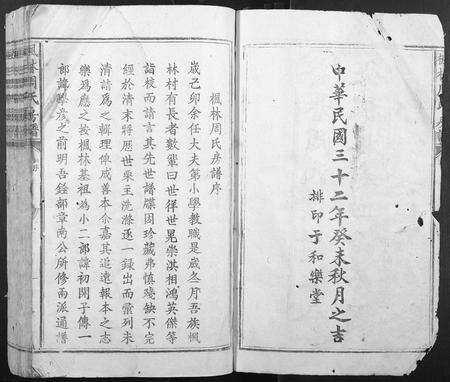 中華民國三十二年癸未秋月之吉
排印于和樂堂
楓林周氏房譜序
歲己卯余任大夫第小學教職是歲冬月吾族楓
林村有長者數輩曰世伴世晃崇淇相鴻英傑等
詣校而請言其先世譜牒因珍藏弗慎殘缺不完
經於清末將歷世乘主洗滌逐一錄出而彙列未
清請為之輯理俾成善本余嘉其追遠報本之志
樂為應之按楓林基祖為小二郎諱初開子傳一
郎諱勝彥之前明吾銓部章南公所修兩派通譜